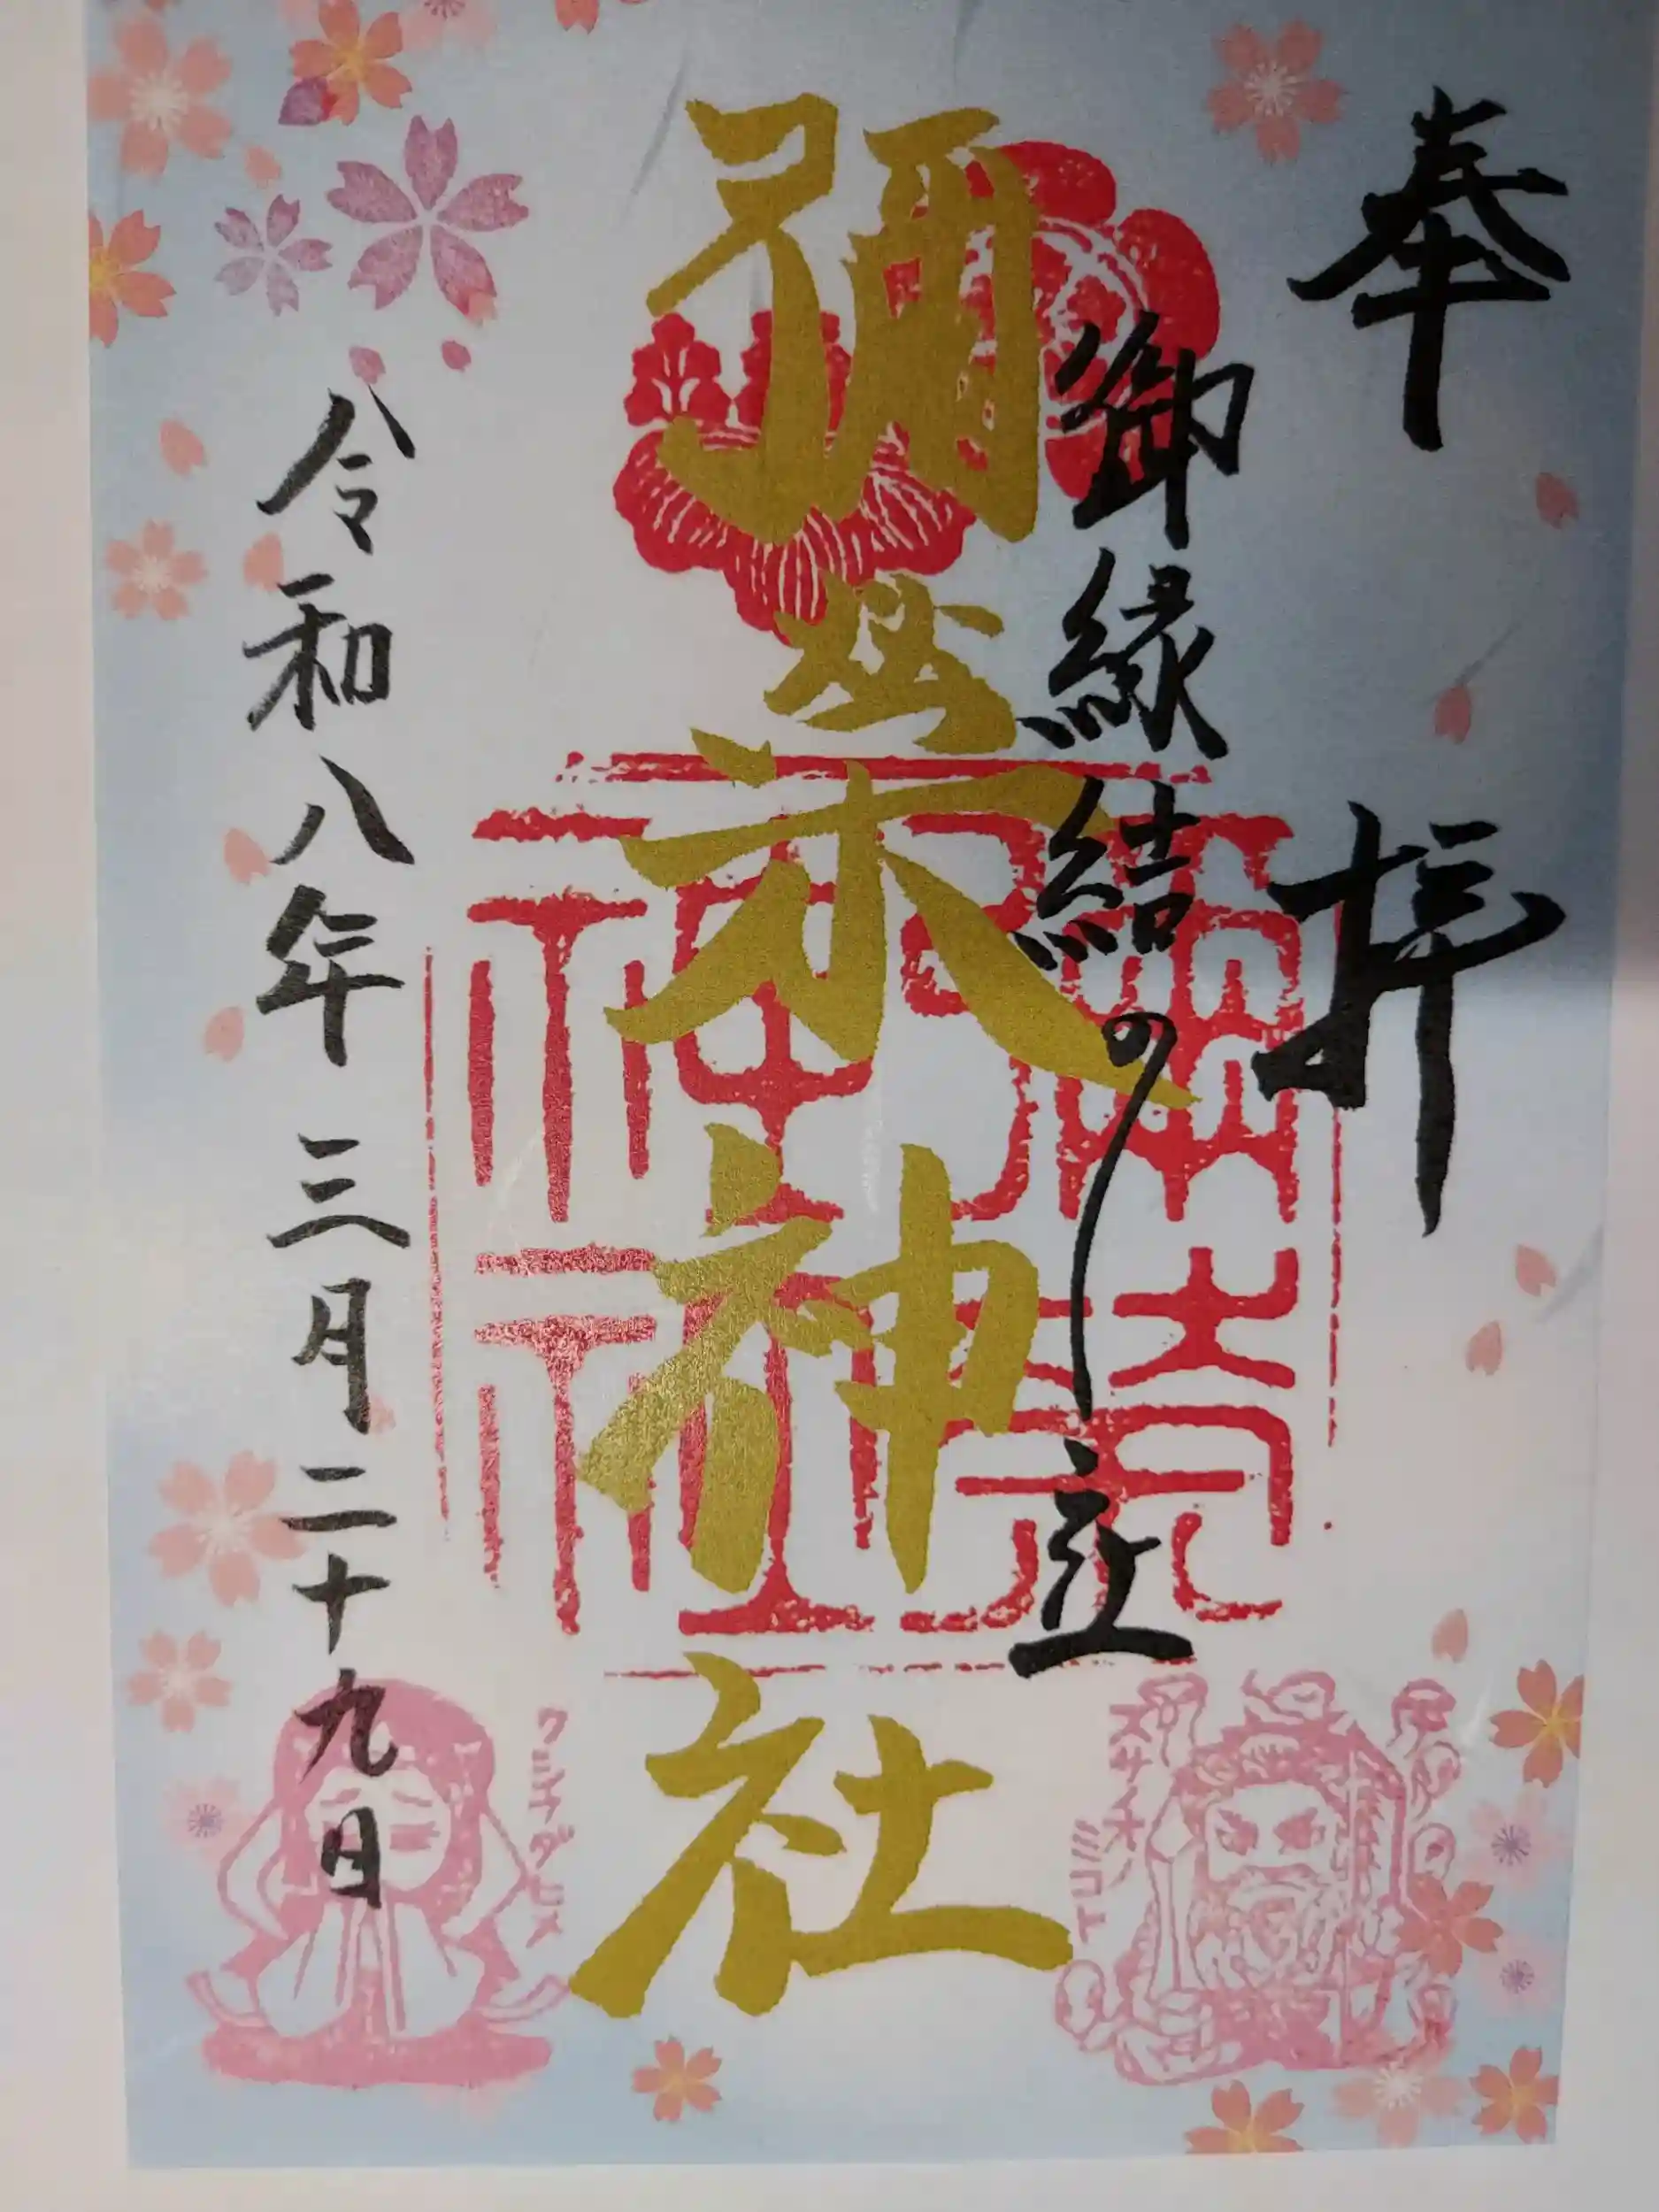 奉拝
御縁結の丘
彌栄神社
令和八年三月二十九日
彌榮
神社
スサノオノ
ミコト
クシナダヒメ